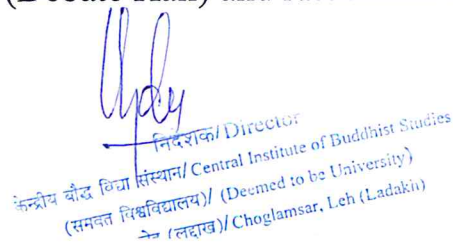 (Debate Hall) and
निदेशक/Director
केन्द्रीय बौद्ध विद्या संस्थान/ Central Institute of Buddhist Studies
(समवत विश्वविद्यालय)/ (Deemed to be University)
(लद्दाख)/ Choglamsar, Leh (Ladakh)